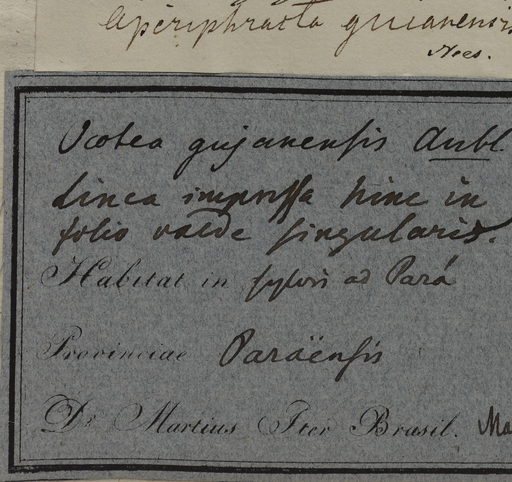 Aperiphracta guianensis
Nees.
Ocotea gujanensis Aubl
Linea impressa hinc in
folio valde singularis.
Habitat in sylvis ad Pará
Provinciae Paraënsis
Dr Martius Iter Brasil. Ma